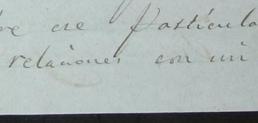 ese particula
relaciones con mi